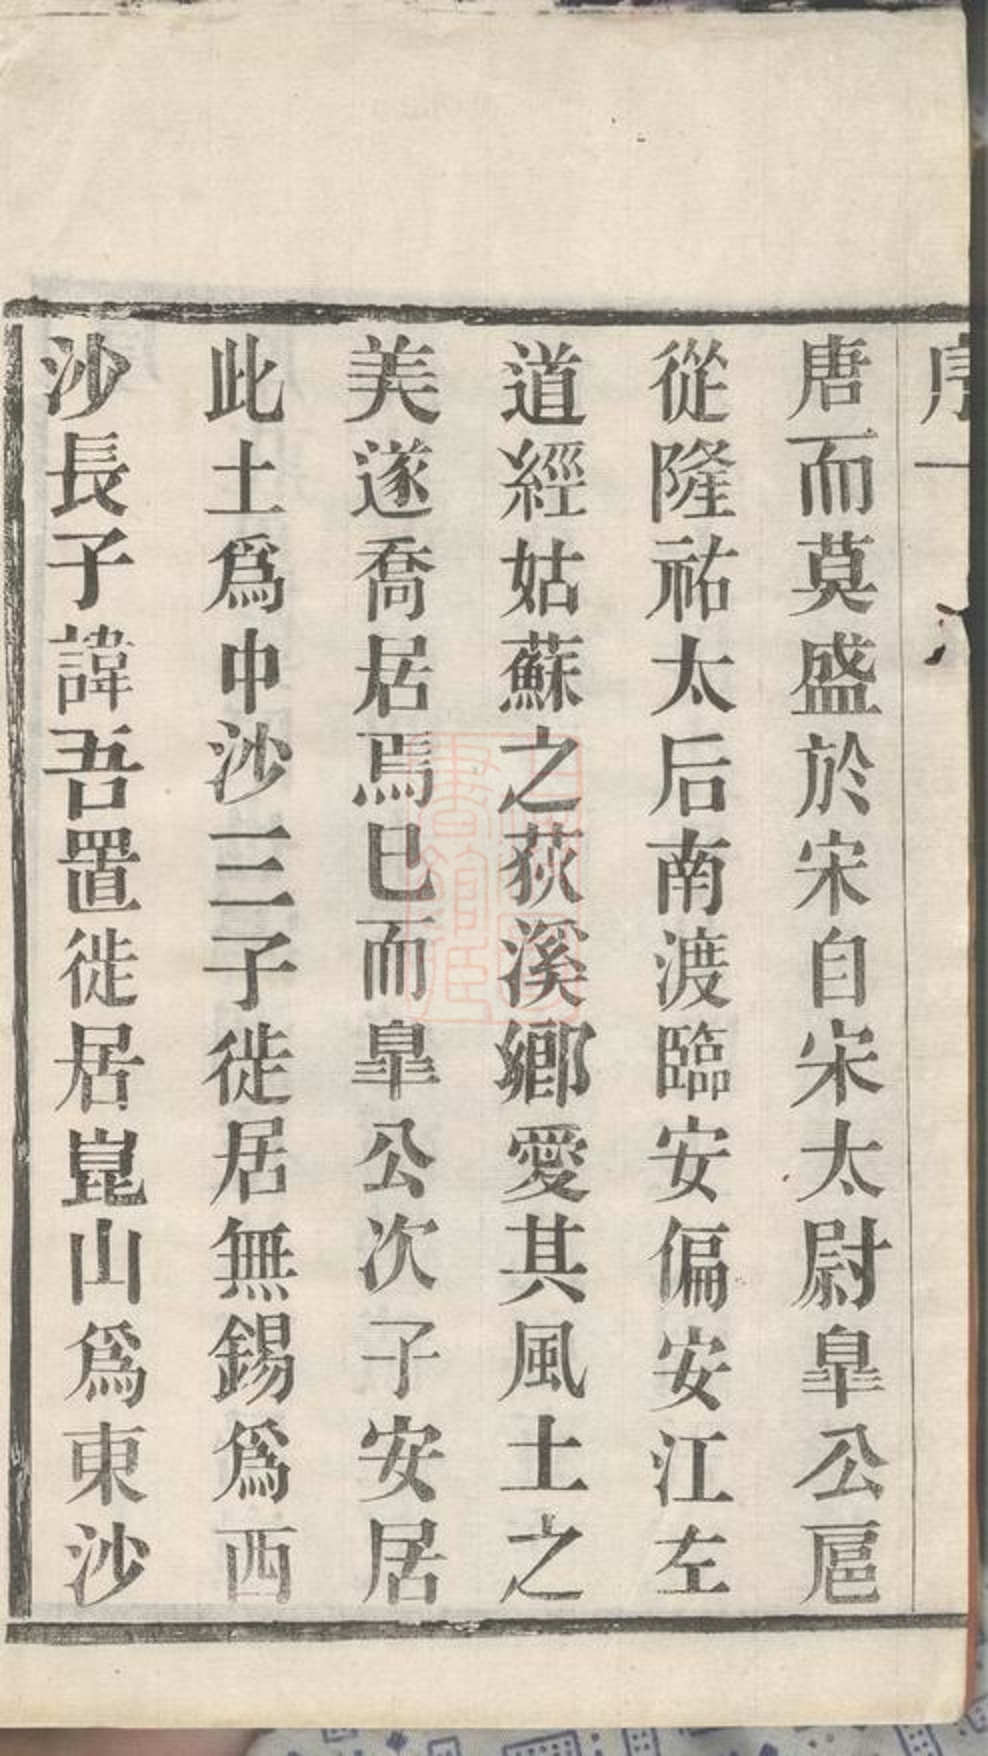 序一
唐而莫盛於宋自宋太尉皐公扈
從隆祐太后南渡臨安偏安江左
道經姑蘇之荻溪鄉愛其風土之
美遂喬居焉巳而皐公次子安居
此土爲中沙三子徙居無錫爲西
沙長子諱吾置徙居崑山爲東沙